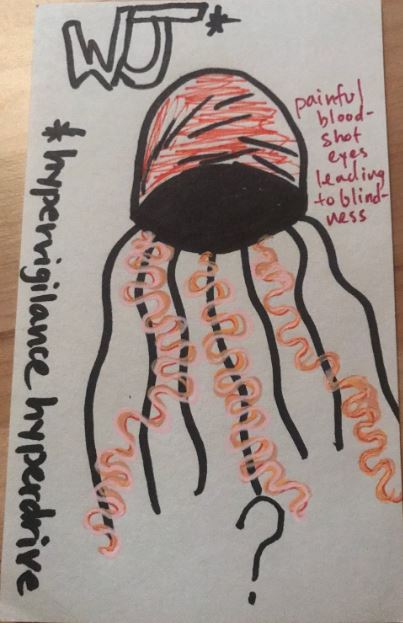 painful
blood-
shot
eyes
leading
to blind-
ness
*hypervigilance hyperdrive
?